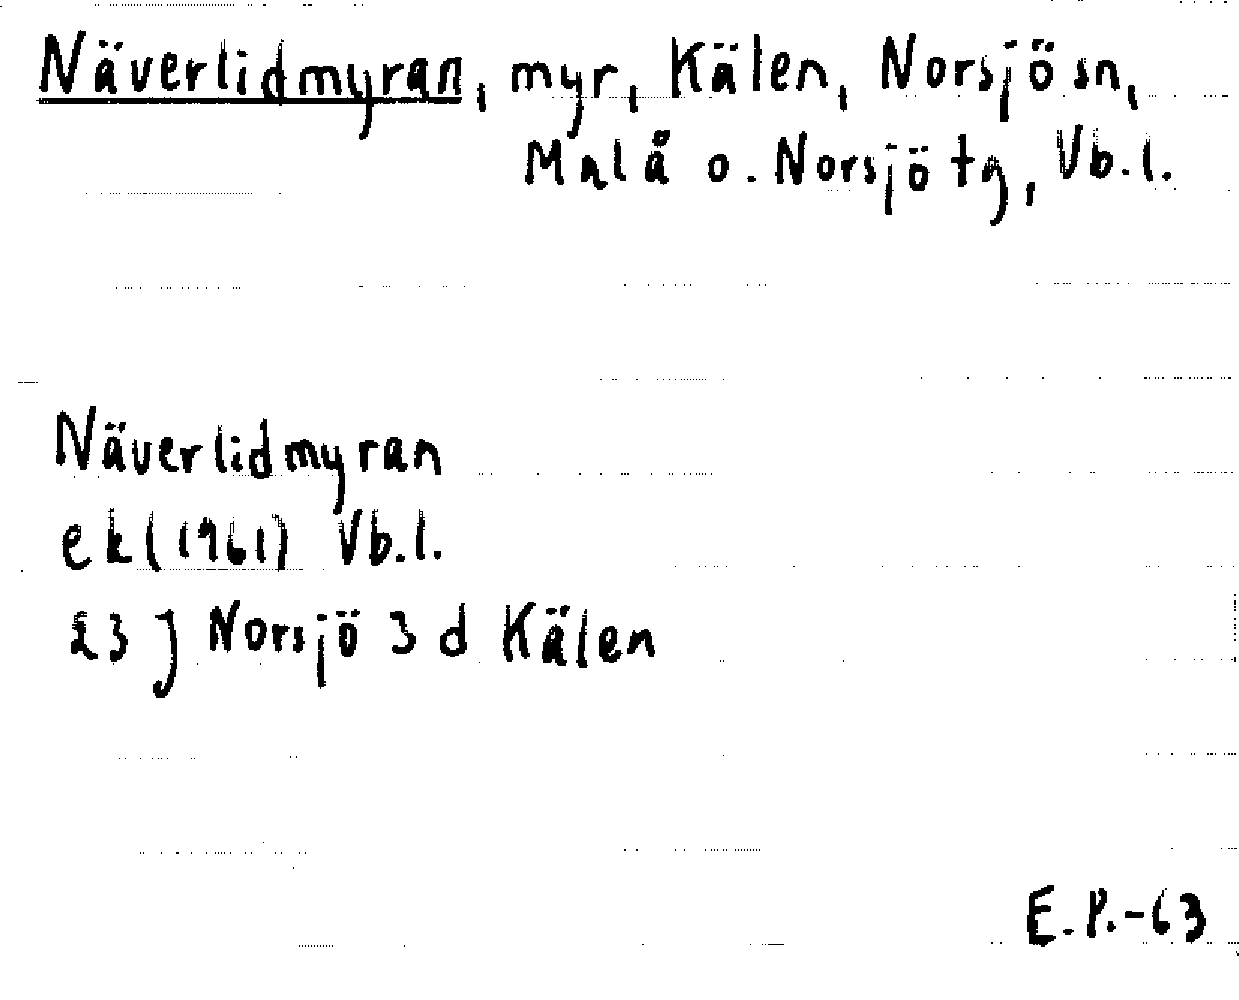 Näverlidmyran, myr, Kälen, Norsjö sn,
Malå o. Norsjö tg, Vb.l.
Näverlidmyran
ek (1961) Vb.l.
23 J Norsjö 3 d Kälen
E.P.-63